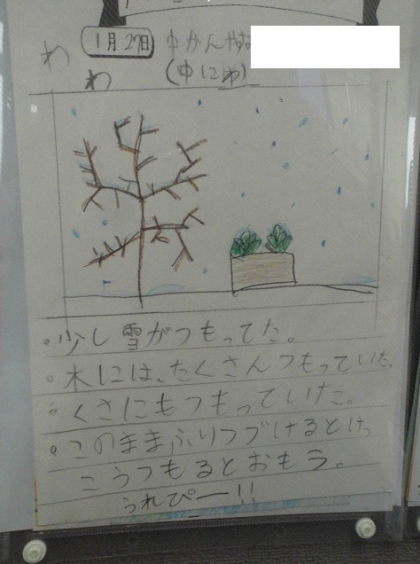 1月27日 中かんやすみ
(中にわ)
わ
わ
。少し雪がつもってた。
。木には、たくさんつもっていた。
。くさにもつもっていた。
。このままふりつづけるとけっ
こうつもるとおもう。
うれぴー!!